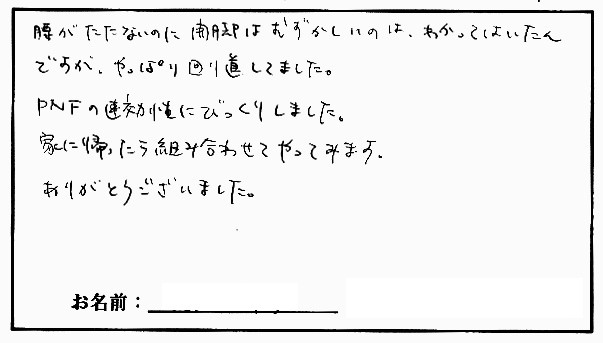 腰がたたないのに開脚はむずかしいのは、わかってはいたん
ですが、やっぱり回り道してました。
PNFの速効性にびっくりしました。
家に帰ったら組み合わせてやってみます。
ありがとうございました。
お名前：